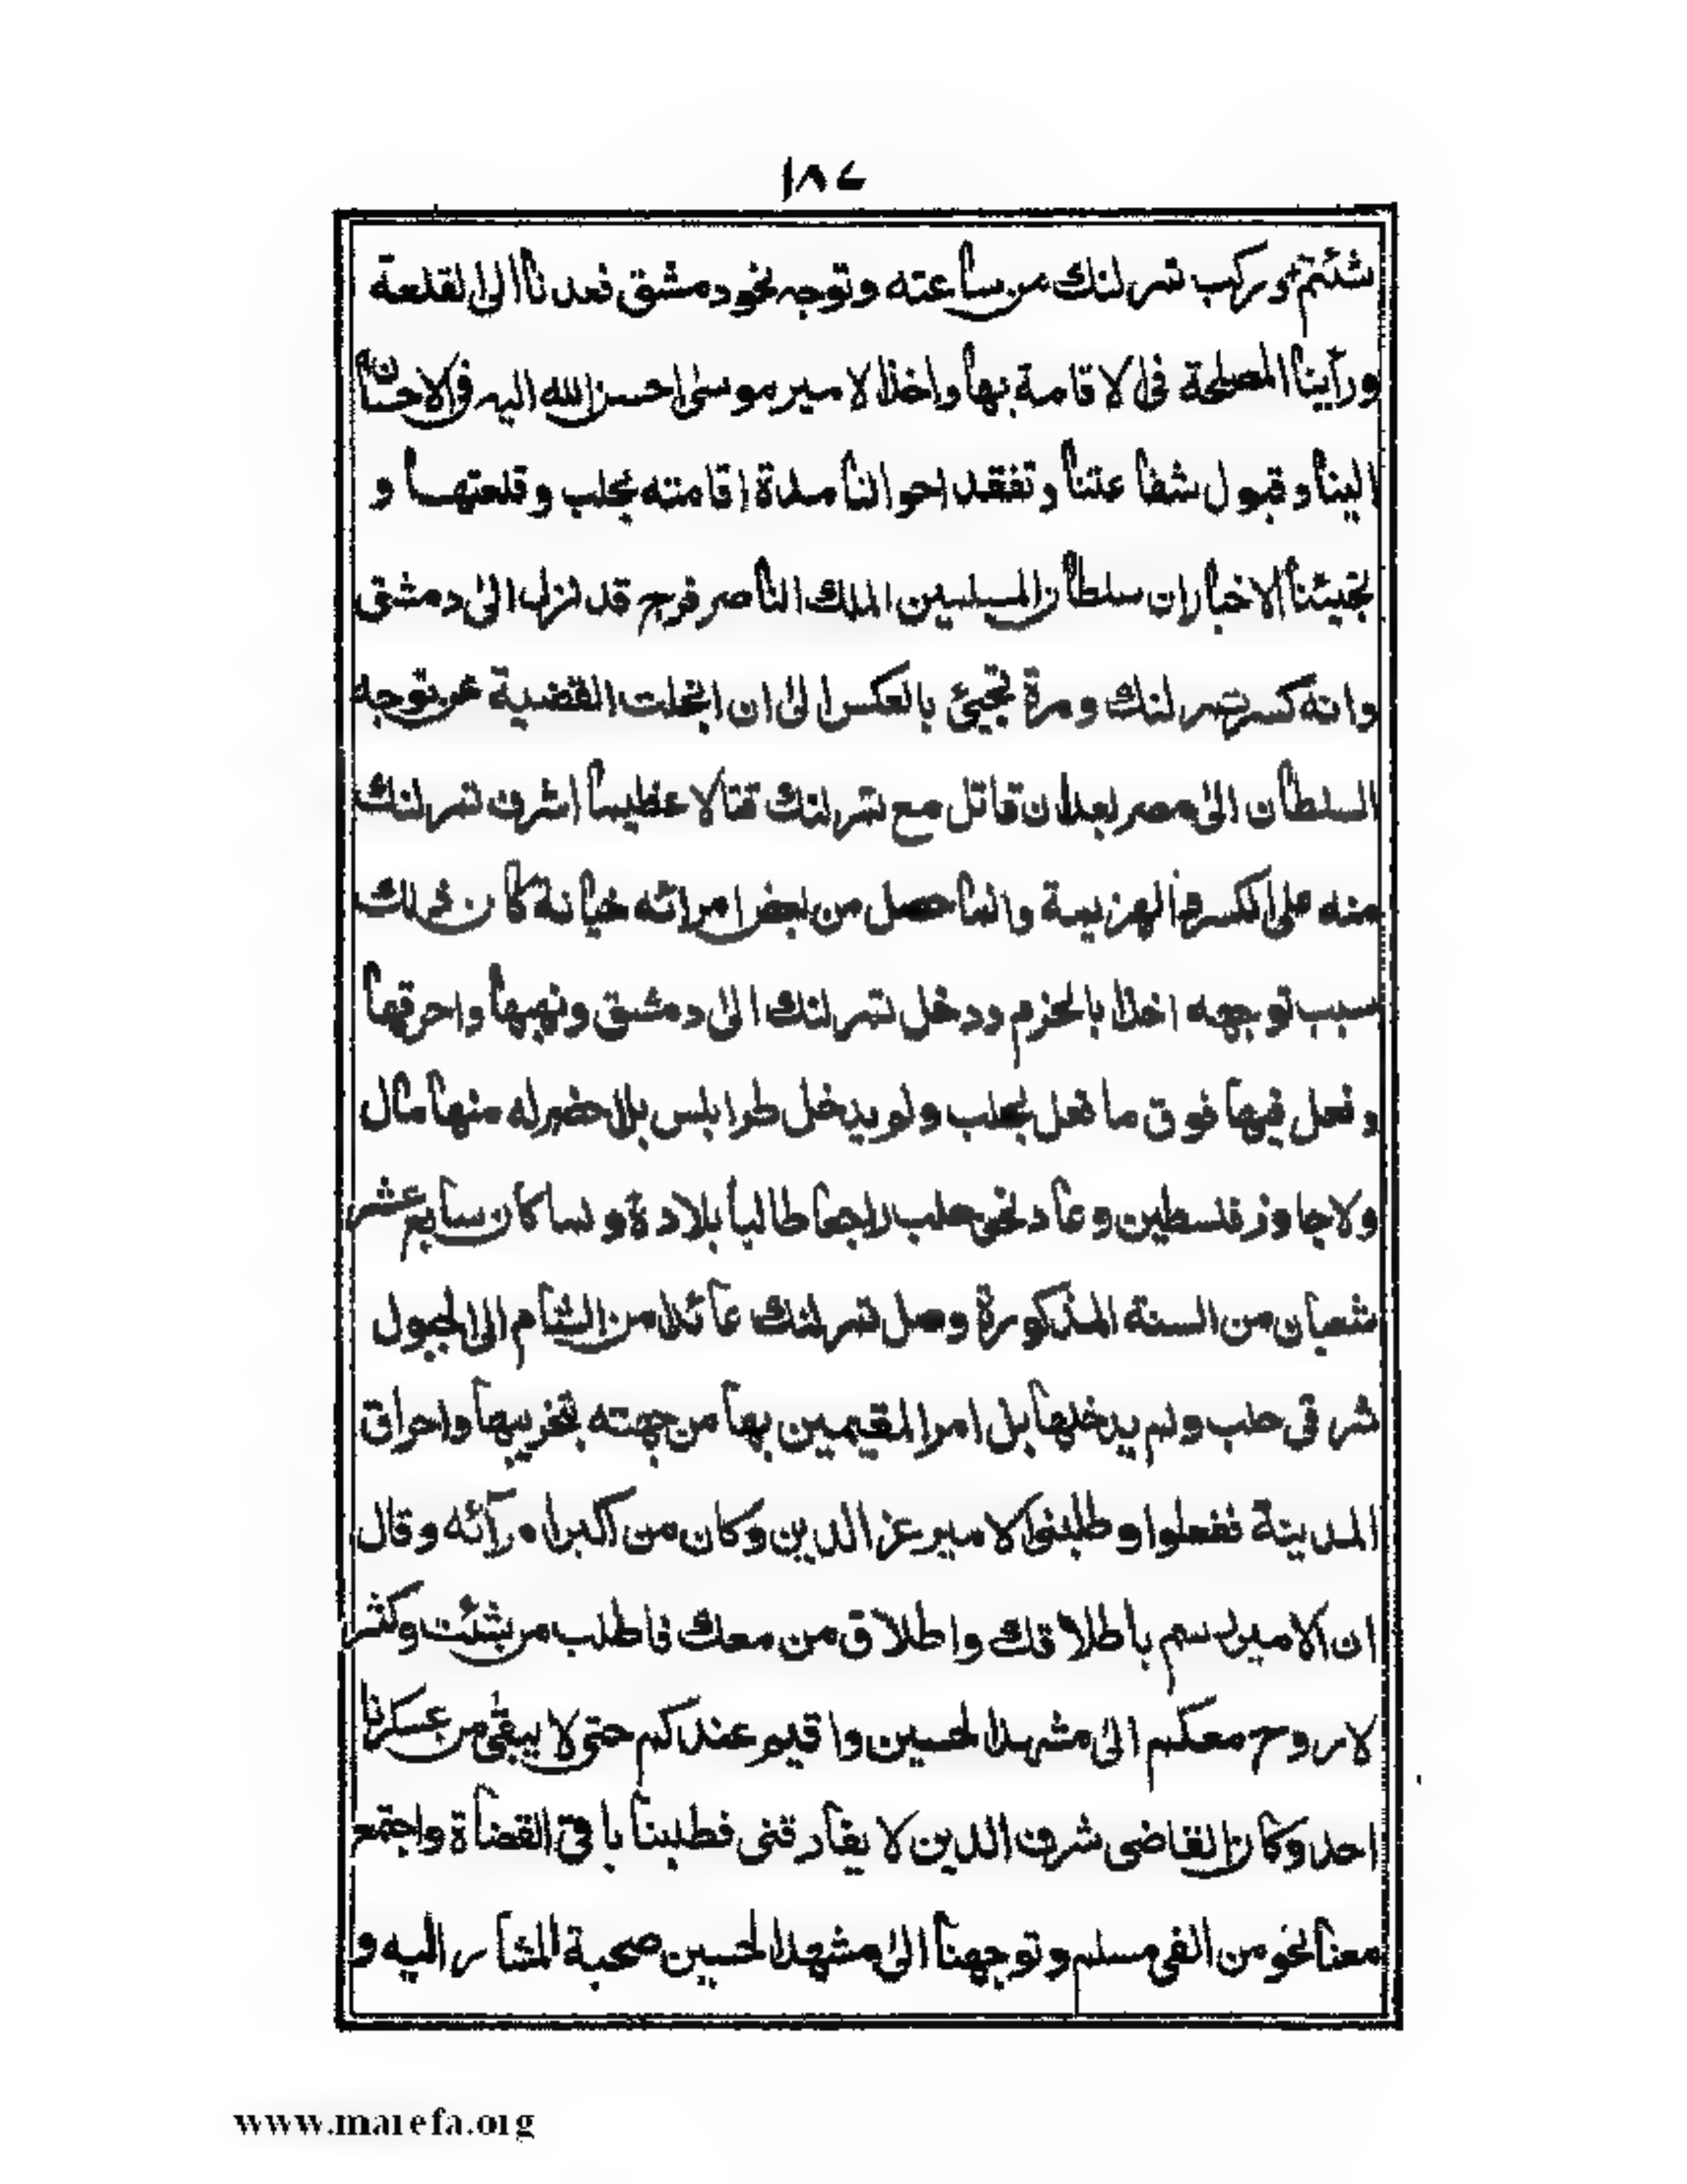 ١٨٤
شئتم وركب تمرلنك من ساعته وتوجه نحو دمشق فعدنا الى القلعة
ورأينا المصلحة في الاقامة بها واخذ الامير موسى احسن الله اليه في الاحسان
الينا وقبول شفاعتنا وتفقد احوالنا مدة اقامته بحلب وقلعتها و
تجيئنا الاخبار ان سلطان المسلمين الملك الناصر فرج قد نزل الى دمشق
وانه كسر تمرلنك ومرة تجيئ بالعكس الى ان انجلت القضية عن توجه
السلطان الى مصر بعد ان قاتل مع تمرلنك قتالا عظيما اشرف تمرلنك
منه على الكسر والهزيمة وانما حصل من بعض امرائه خيانة كان ذلك
سبب توجهه اخذا بالحزم ودخل تمرلنك الى دمشق ونهبها واحرقها
وفعل فيها فوق ما فعل بحلب ولم يدخل طرابلس بل احضر له منها مال
ولا جاوز فلسطين وعاد نحو حلب راجعا طالبا بلاده ولما كان سابع عشر
شعبان من السنة المذكورة وصل تمرلنك عائدا من الشام الى الجبول
شرقي حلب ولم يدخلها بل امر المقيمين بها من جهته بتخريبها واحراق
المدينة ففعلوا وطلبني الامير عز الدين وكان من اكبر امرائه وقال
ان الامير رسم باطلاقك واطلاق من معك فاطلب من شئت وكثر
لاروح معكم الى مشهد الحسين واقيم عندكم حتى لا يبقى من عسكرنا
احد وكان القاضى شرف الدين لا يفارقنى فطلبنا باقي القضاة واجتمع
معنا نحو من الفي مسلم وتوجهنا الى مشهد الحسين صحبة المشار اليه و
www.marefa.org